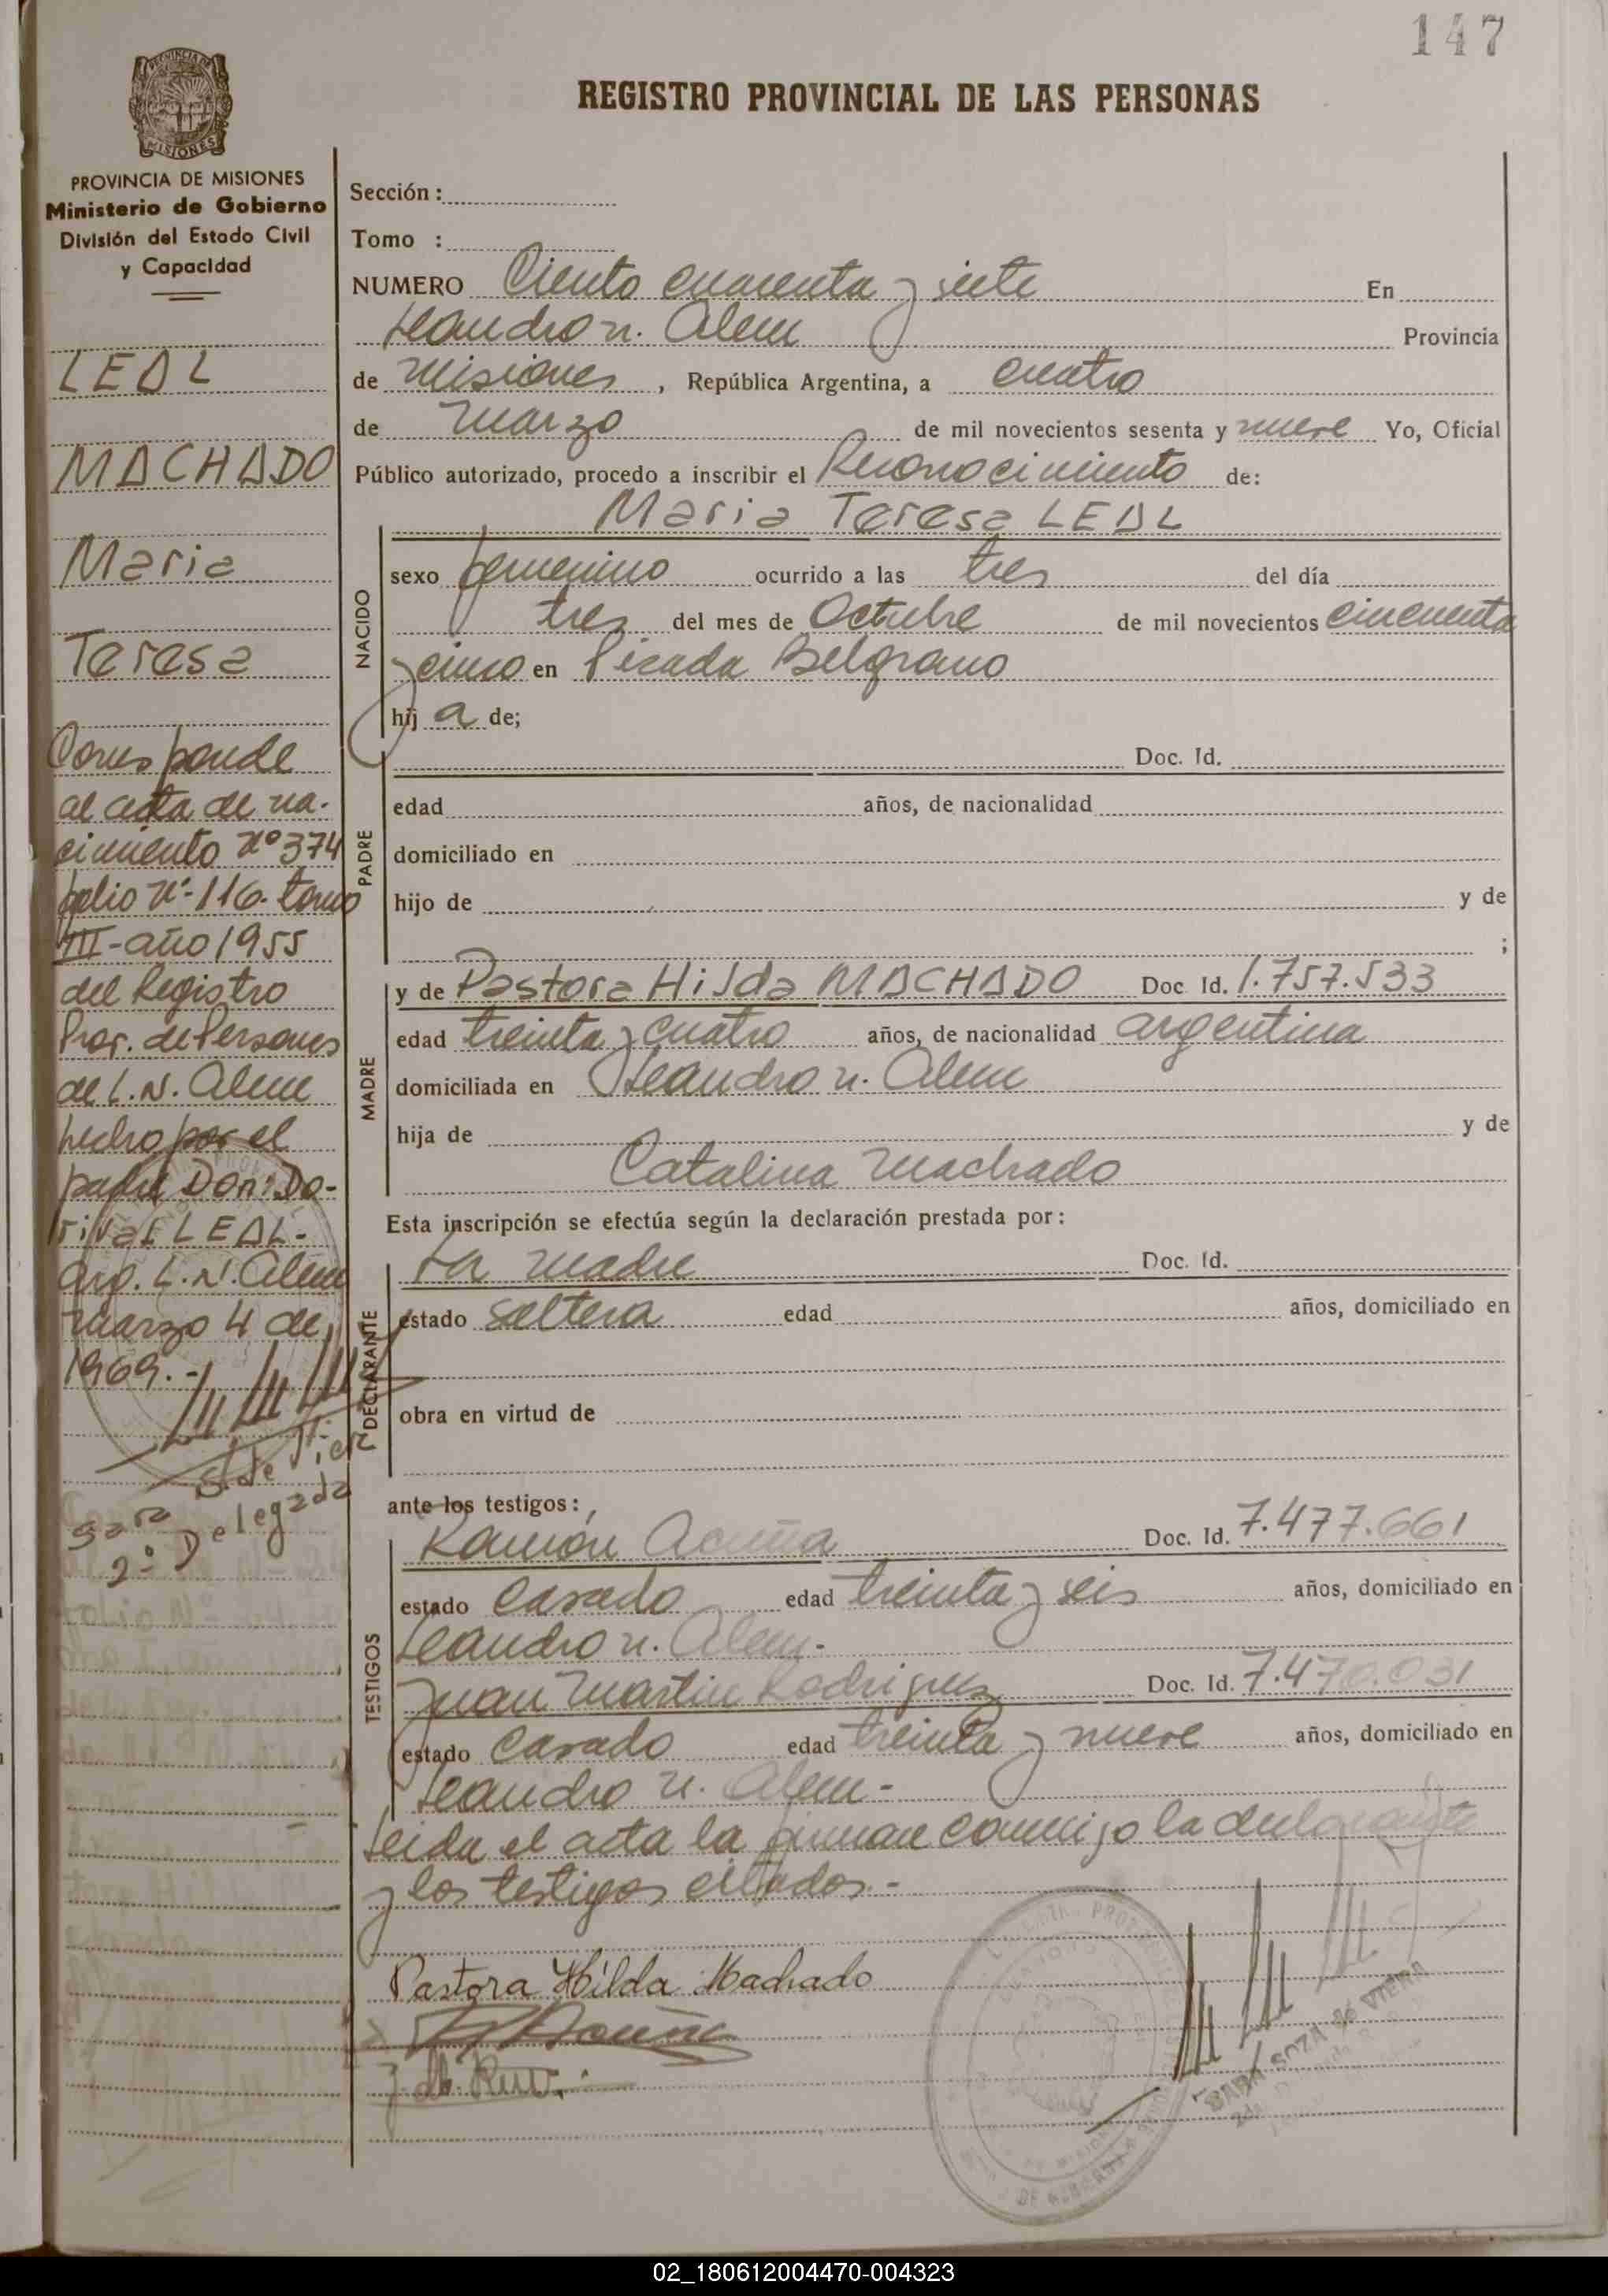 147
REGISTRO PROVINCIAL DE LAS PERSONAS
PROVINCIA DE
MISIONES
PROVINCIA DE MISIONES
Ministerio de Gobierno
División del Estado Civil
y Capacidad
LEAL
MACHADO
Maria
Teresa
Corresponde
al acta de na-
cimiento Nº 374
folio Nº 116. tomo
III - año 1955
del Registro
Prov. de Personas
de L. N. Alem
hecho por el
padre Don: Do-
rival LEAL.-
arg. L. N. Alem
marzo 4 de
1969.-
Sara
2º Delegada
Sección :
Tomo :
NUMERO Ciento cuarenta y siete En
Leandro N. Alem Provincia
de Misiones , República Argentina, a cuatro
de Marzo de mil novecientos sesenta y nueve Yo, Oficial
Público autorizado, procedo a inscribir el Reconocimiento de:
Maria Teresa LEAL
NACIDO
sexo femenino ocurrido a las tres del día
tres del mes de Octubre de mil novecientos cincuenta
y cinco en Picada Belgrano
hij a de;
PADRE
Doc. Id.
edad años, de nacionalidad
domiciliado en
hijo de y de
;
MADRE
y de Pastora Hilda MACHADO Doc. Id. 1.757.533
edad treinta y cuatro años, de nacionalidad argentina
domiciliada en Leandro N. Alem
hija de y de
Catalina Machado
Esta inscripción se efectúa según la declaración prestada por :
DECLARANTE
La madre Doc. Id.
estado soltera edad años, domiciliado en
obra en virtud de
ante los testigos :
TESTIGOS
Ramón Acuña Doc. Id. 7.477.661
estado Casado edad treinta y seis años, domiciliado en
Leandro N. Alem.-
Juan Martin Rodriguez Doc. Id. 7.470.031
estado Casado edad treinta y nueve años, domiciliado en
Leandro N. Alem.-
Leida el acta la firman conmigo la declarante
y los testigos citados.-
Pastora Hilda Machado
SARA SOZA de VIERA
02_180612004470-004323